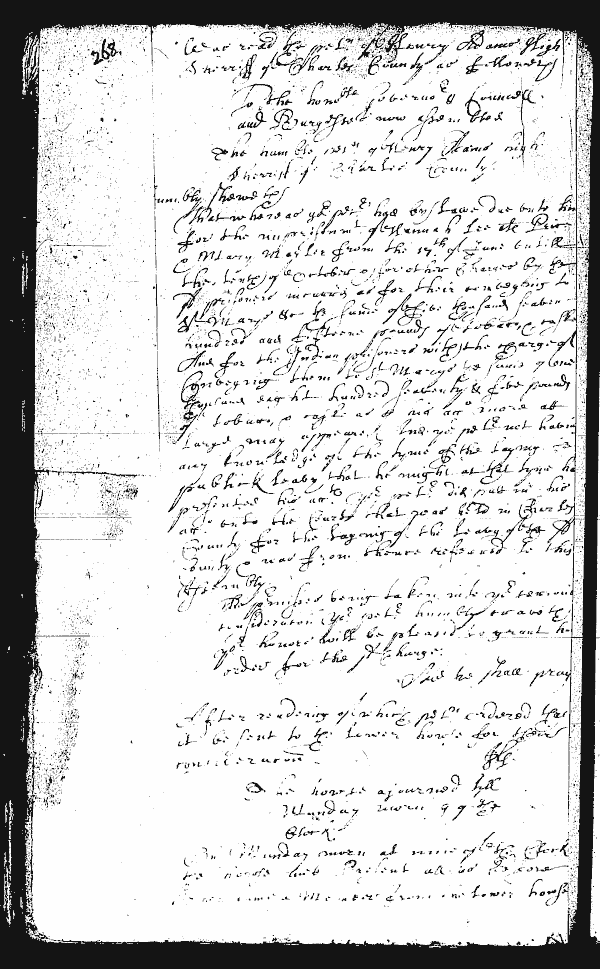 268.
Was read the petn of Henry Adams High
Sherriff of Charles County as followeth
To the honoble Governor & Councell
and Burgesses now assembled
The humble petn of Henry Adams high
Sherriff of Charles County.
umbly sheweth
That whereas yor petr hath by Lawe due unto him
for the imprisonmt of Hannah Lee als Price
& Mary from the 17th of June untill
the tenth of October & for other Charges by the
sd prisoners as for their conveying to
St Marys &c the sume of five thousand seaven
hundred and fifteene pounds of tobacco caske
And for the Indian prisoners with the charge of
Conveying them to St Marys ye sume of one
thousand eaight hundred seaventy & five pounds
of tobacco & caske as p his acct more att
large may appeare And yor petr not having
any knowledge of the tyme of the laying the
publick Leavy that he might at that tyme ha
presented his acct yor petr did put in his
acct unto the Courte that was held in Charles
County for the laying of the Leavy of the sd
County & was from thence referred to this
Assembly
The premises being taken into yor serious
consideracon yor petr humbly craveth
yor honors will be pleased to grant him
order for the sd Charge.
And he shall pray
After reading of which petn ordered that
it be sent to the lower house for their
consideracon
The house ajourned till
Munday morn 9 of the
Clock
On Munday morn at nine of the Clock
the house mett Present all as before
came a Member from the lower house